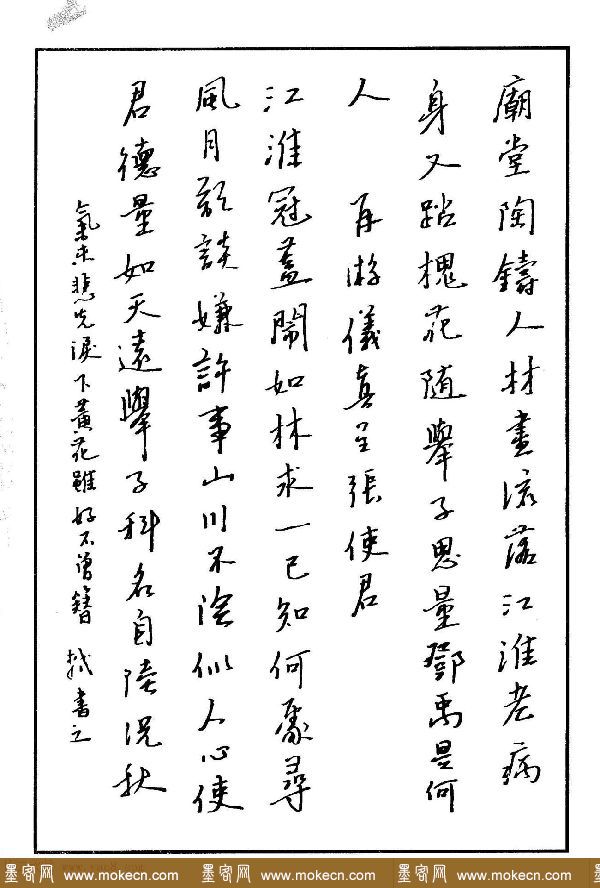 廟堂陶鑄人材盡流落江淮老病
身又踏槐花随舉子思量鄧禹是何
人 再游儀真呈張使君
江淮冠蓋鬧如林求一己知何處尋
風月欲談嫌許事山川不險似人心使
君德量如天遠舉子科名自陸沉秋
氣未悲先淚下黃花雖好不曾簪 書之
墨客网 www.mokecn.com 墨客网 www.mokecn.com 墨客网 www.mokecn.com 墨客网 www.mokecn.com